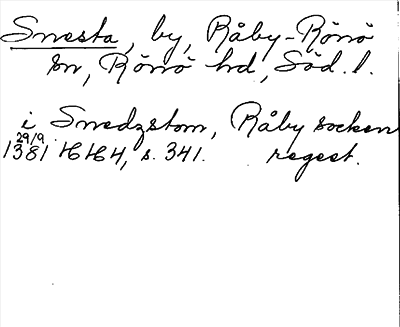 Smesta, by, Råby-Rönö
sn, Rönö hd, Söd. l.
i Smedzstom, Råby socken
29/9
1381 HH4, s. 341. regest.